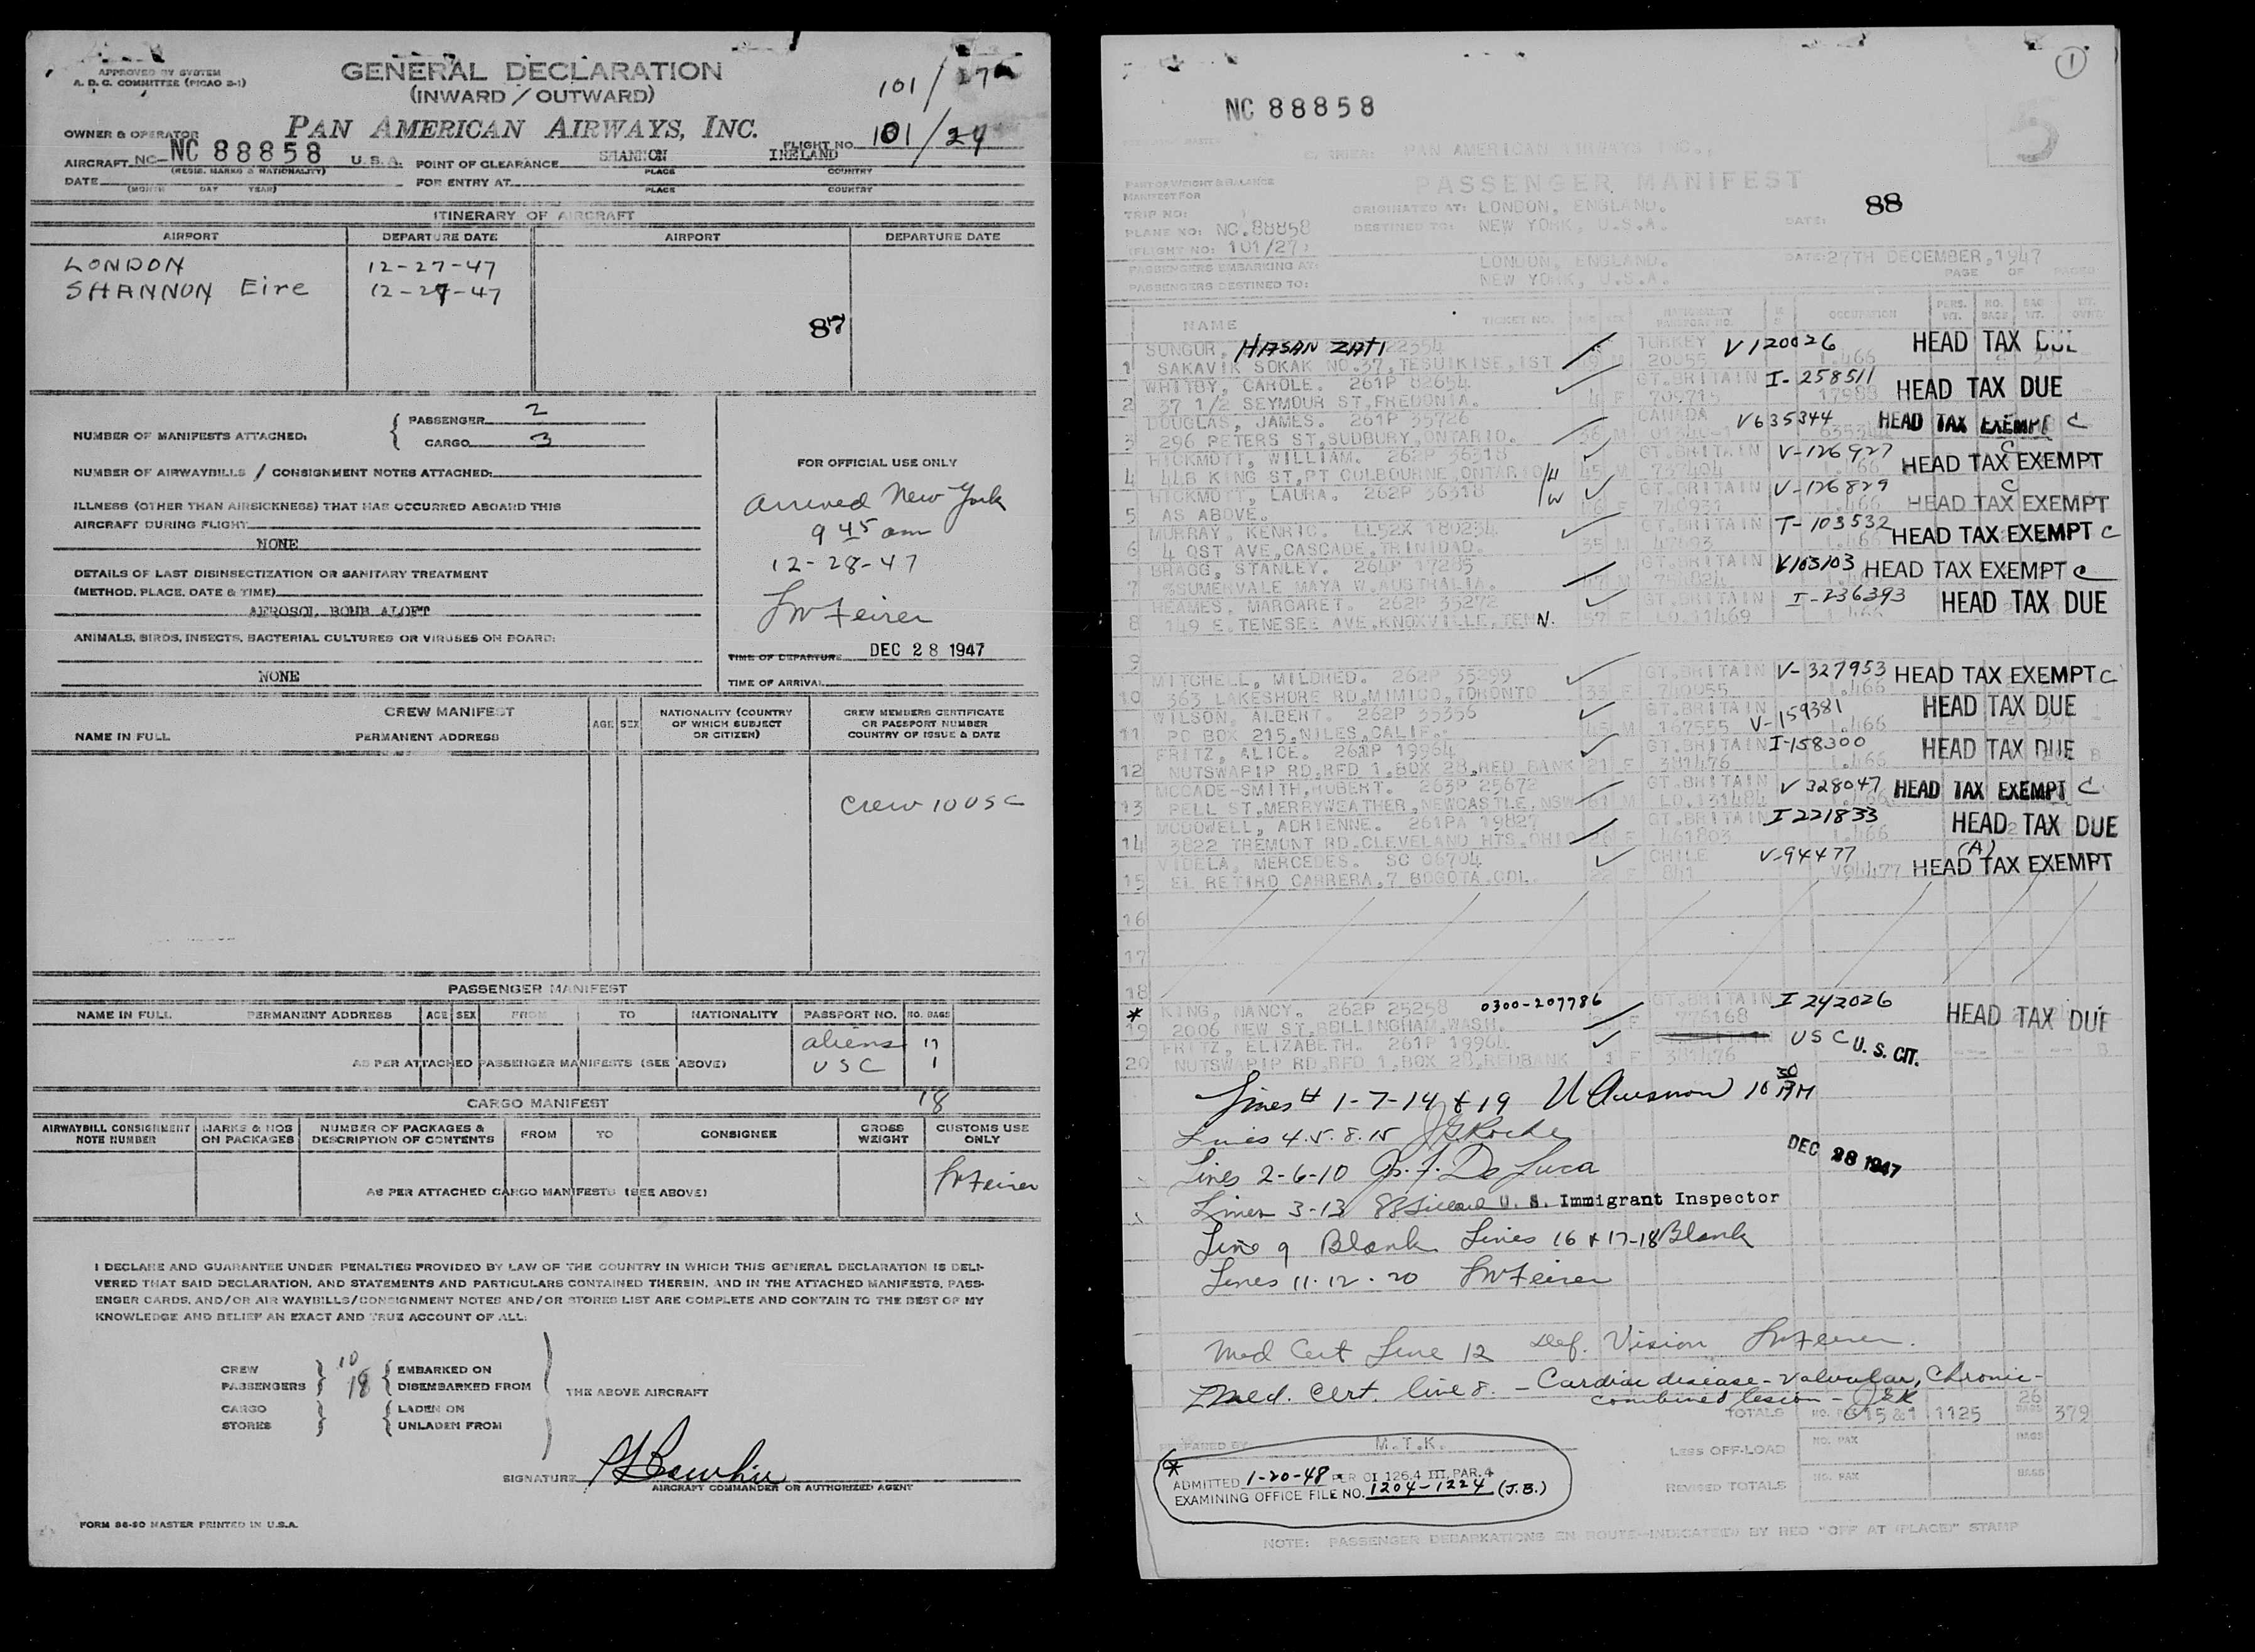 APPROVED BY SYSTEM
A. D. C. COMMITTEE (PICAO 2-1)
GENERAL DECLARATION
(INWARD / OUTWARD)
101/27
PAN AMERICAN AIRWAYS, INC.
OWNER & OPERATOR
FLIGHT NO. 101/
AIRCRAFT NC- NC 88858 U. S. A. POINT OF CLEARANCE SHANNON IRELAND
(REGIS. MARKS & NATIONALITY) PLACE COUNTRY
DATE FOR ENTRY AT
(MONTH DAY YEAR) PLACE COUNTRY
ITINERARY OF AIRCRAFT
AIRPORT DEPARTURE DATE AIRPORT DEPARTURE DATE
LONDON 12-27-47
SHANNON Eire 12-27-47
87
NUMBER OF MANIFESTS ATTACHED:
PASSENGER 2
CARGO 3
NUMBER OF AIRWAYBILLS / CONSIGNMENT NOTES ATTACHED:
ILLNESS (OTHER THAN AIRSICKNESS) THAT HAS OCCURRED ABOARD THIS
AIRCRAFT DURING FLIGHT
NONE
DETAILS OF LAST DISINSECTIZATION OR SANITARY TREATMENT
(METHOD, PLACE, DATE & TIME)
AEROSOL BOMB ALOFT
ANIMALS, BIRDS, INSECTS, BACTERIAL CULTURES OR VIRUSES ON BOARD:
NONE
FOR OFFICIAL USE ONLY
arrived New York
9 45 am
12-28-47
TIME OF DEPARTURE DEC 28 1947
TIME OF ARRIVAL
CREW MANIFEST
NAME IN FULL PERMANENT ADDRESS
AGE SEX
NATIONALITY (COUNTRY
OF WHICH SUBJECT
OR CITIZEN)
CREW MEMBERS CERTIFICATE
OR PASSPORT NUMBER
COUNTRY OF ISSUE & DATE
Crew 10 USC
PASSENGER MANIFEST
NAME IN FULL PERMANENT ADDRESS AGE SEX FROM TO NATIONALITY PASSPORT NO. NO. BAGS
aliens 17
AS PER ATTACHED PASSENGER MANIFESTS (SEE ABOVE) USC 1
CARGO MANIFEST 18
AIRWAYBILL CONSIGNMENT
NOTE NUMBER
MARKS & NOS
ON PACKAGES
NUMBER OF PACKAGES &
DESCRIPTION OF CONTENTS
FROM TO CONSIGNEE
GROSS
WEIGHT
CUSTOMS USE
ONLY
AS PER ATTACHED CARGO MANIFESTS (SEE ABOVE)
I DECLARE AND GUARANTEE UNDER PENALTIES PROVIDED BY LAW OF THE COUNTRY IN WHICH THIS GENERAL DECLARATION IS DELI-
VERED THAT SAID DECLARATION, AND STATEMENTS AND PARTICULARS CONTAINED THEREIN, AND IN THE ATTACHED MANIFESTS, PASS-
ENGER CARDS, AND/OR AIR WAYBILLS/CONSIGNMENT NOTES AND/OR STORES LIST ARE COMPLETE AND CONTAIN TO THE BEST OF MY
KNOWLEDGE AND BELIEF AN EXACT AND TRUE ACCOUNT OF ALL:
CREW 10 EMBARKED ON
PASSENGERS 18 DISEMBARKED FROM
THE ABOVE AIRCRAFT
CARGO LADEN ON
STORES UNLADEN FROM
SIGNATURE
AIRCRAFT COMMANDER OR AUTHORIZED AGENT
FORM 86-90 MASTER PRINTED IN U.S.A.
1
NC 88858
5
CARRIER: PAN AMERICAN AIRWAYS INC.,
PART OF WEIGHT & BALANCE
MANIFEST FOR
PASSENGER MANIFEST
88
TRIP NO: ORIGINATED AT: LONDON, ENGLAND. DATE:
PLANE NO: NC.88858 DESTINED TO: NEW YORK, U.S.A.
(FLIGHT NO: 101/27)
PASSENGERS EMBARKING AT: LONDON, ENGLAND. DATE: 27TH DECEMBER, 1947
PASSENGERS DESTINED TO: NEW YORK, U.S.A. PAGE OF PAGES
NAME TICKET NO. AGE SEX NATIONALITY PASSPORT NO. OCCUPATION PERS. WT. NO. BAGS BAG WT.
SUNGUR, HASAN ZATI 22354 TURKEY V120026 HEAD TAX DUE
1 SAKAVIK SOKAK NO.37, TESUIKISE, IST M 20055 1.466
WHITBY, CAROLE. 261P 82654 GT.BRITAIN I-258511 HEAD TAX DUE
2 37 1/2 SEYMOUR ST, FREDONIA. 4 F 709715 17988
DOUGLAS, JAMES. 261P 35726 CANADA V635344 HEAD TAX EXEMPT C
3 296 PETERS ST, SUDBURY, ONTARIO. 36 M
HICKMOTT, WILLIAM. 262P 36318 GT.BRITAIN V-126927 C
4 44B KING ST, PT COLBOURNE, ONTARIO /H 45 M 737404 1.466 HEAD TAX EXEMPT
HICKMOTT, LAURA. 262P 36318 /W GT.BRITAIN V-126829 C
5 AS ABOVE. 46 F 740937 1.466 HEAD TAX EXEMPT
MURRAY, KENRIC. LL52X 180234 GT.BRITAIN T-103532 HEAD TAX EXEMPT C
6 4 QST AVE, CASCADE, TRINIDAD. 35 M 47693 1.466
BRAGG, STANLEY. 264P 17285 GT.BRITAIN V103103 HEAD TAX EXEMPT C
7 %SUMERVALE MAYA W, AUSTRALIA. M 754824
HEAMES, MARGARET. 262P 35272 GT.BRITAIN I-236393 HEAD TAX DUE
8 149 E. TENESEE AVE, KNOXVILLE, TENN. 57 F LO.11469 1.466
9
MITCHELL, MILDRED. 262P 35299 GT.BRITAIN V-327953 HEAD TAX EXEMPT C
10 363 LAKESHORE RD, MIMICO, TORONTO 33 F 740055 1.466
WILSON, ALBERT. 262P 35356 GT.BRITAIN V-159381 HEAD TAX DUE
11 PO BOX 215, NILES, CALIF. 45 M 167555 1.466
FRITZ, ALICE. 261P 19964 GT.BRITAIN I-158300 HEAD TAX DUE
12 NUTSWAPIP RD, RFD 1, BOX 28, RED BANK 21 F 381476 1.466
MCCADE-SMITH, ROBERT. 263P 25672 GT.BRITAIN V 328047 HEAD TAX EXEMPT C
13 PELL ST, MERRYWEATHER, NEWCASTLE, NSW 61 M LO.131484 1.466
MCDOWELL, ADRIENNE. 261PA 19827 GT.BRITAIN I 221833 HEAD TAX DUE
14 3822 TREMONT RD. CLEVELAND HTS. OHIO F 461803 1.466
VIDELA, MERCEDES. SC 06704 CHILE V-94477 (A)
15 EL RETIRO CARRERA, 7 BOGOTA. COL. 22 F 841 V94477 HEAD TAX EXEMPT
16
17
18
* KING, NANCY. 262P 25258 0300-207786 GT.BRITAIN I 242026 HEAD TAX DUE
19 2006 NEW ST, BELLINGHAM, WASH. F 776168
FRITZ, ELIZABETH. 261P 19964. USC U. S. CIT.
20 NUTSWAPIP RD, RFD 1, BOX 28, REDBANK 1 F 381476
Lines # 1-7-14 & 19 10 30 AM
Lines 4.5.8.15 JGRoche
Lines 2-6-10 De Luca
DEC 28 1947
Lines 3-13 U. S. Immigrant Inspector
Line 9 Blank Lines 16 & 17-18 Blank
Lines 11.12.20
Med Cert Line 12 Def. Vision
Med. Cert. line 8. - Cardiac disease - valvular, Chronic -
combined lesion - JGR
TOTALS NO. PAX 15&1 1125 26 BAGS 379
PREPARED BY M.T.K.
LESS OFF-LOAD NO. PAX BAGS
* ADMITTED 1-20-48 PER OI 126.4 III, PAR. 4
EXAMINING OFFICE FILE NO. 1204-1224 (J.B.)
REVISED TOTALS NO. PAX BAGS
NOTE: PASSENGER DEBARKATIONS EN ROUTE—INDICATED BY RED "OFF AT (PLACE)" STAMP